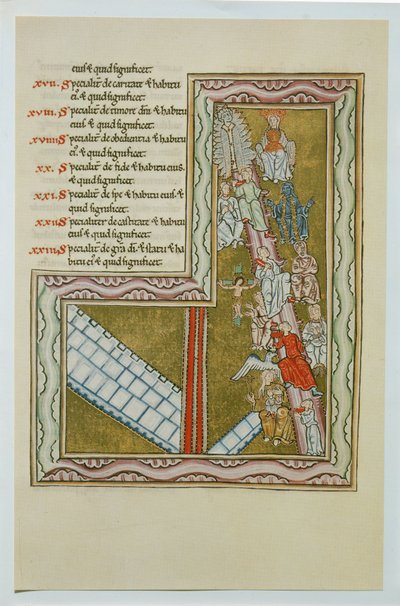 eius ⁊ quid significet.
XVII. Specialit̄ de caritate ⁊ habitu
ei⁹ ⁊ quid significet.
XVIII. Specialit̄ de timore dn̄i ⁊ habitu
eius ⁊ quid significet.
XVIIII. Specialit̄ de obedientia ⁊ habitu
ei⁹ ⁊ quid significet.
XX. Specialit̄ de fide ⁊ habitu eius
⁊ quid significet.
XXI. Specialit̄ de spe ⁊ habitu eius ⁊
quid significet.
XXII. Specialiter de castitate ⁊ habitu
eius ⁊ quid significet.
XXIII. Specialit̄ de gr̄a dī ⁊ statu ⁊ ha
bitu ei⁹ ⁊ quid significet.